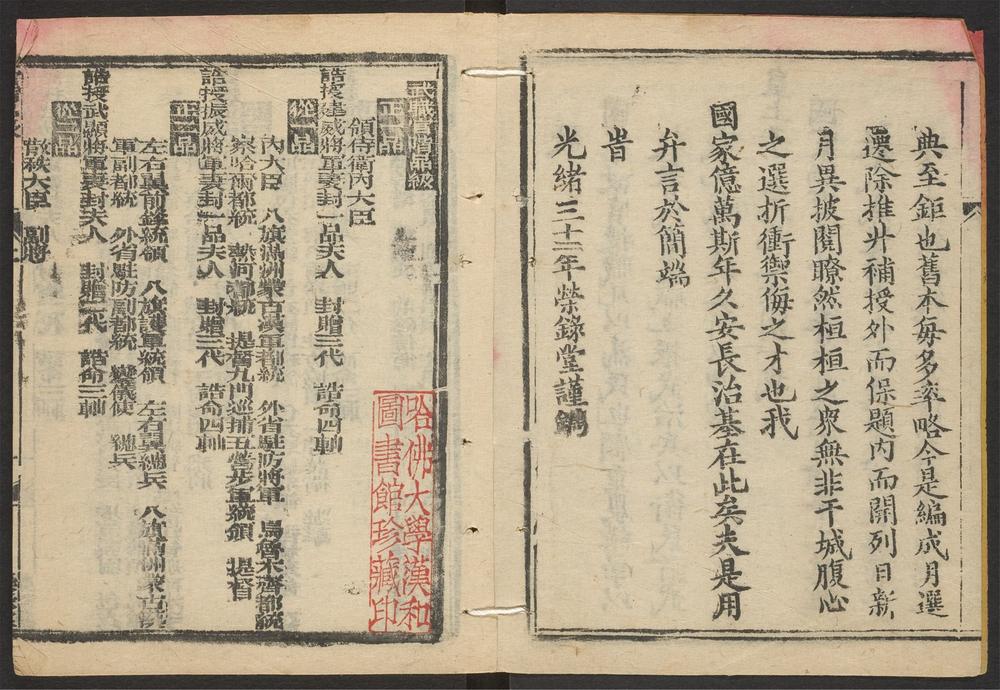 典至鉅也舊本每多率略今是編成月選
遷除推升補授外而保題內而開列日新
月異披閱瞭然桓桓之眾無非干城腹心
之選折衝禦侮之才也我
國家億萬斯年久安長治基在此矣夫是用
弁言於簡端
旹
光緒三十二年榮錄堂謹鐫
哈佛大學漢和
圖書館珍藏印
武職官階品級
正一品
領侍衛內大臣
誥授建威將軍妻封一品夫人 封贈三代 誥命四軸
從一品
內大臣 八旗滿洲蒙古漢軍都統 外省駐防將軍 烏魯木齊都統
察哈爾都統 熱河都統 提督九門巡捕五營步軍統領 提督
誥授振威將軍妻封一品夫人 封贈三代 誥命四軸
正二品
左右翼前鋒統領 八旗護軍統領 左右翼總兵 八旗滿洲蒙古漢
軍副都統 外省駐防副都統 鑾儀使 總兵
誥授武顯將軍妻封夫人 封贈二代 誥命三軸
從二品
散秩大臣 副將